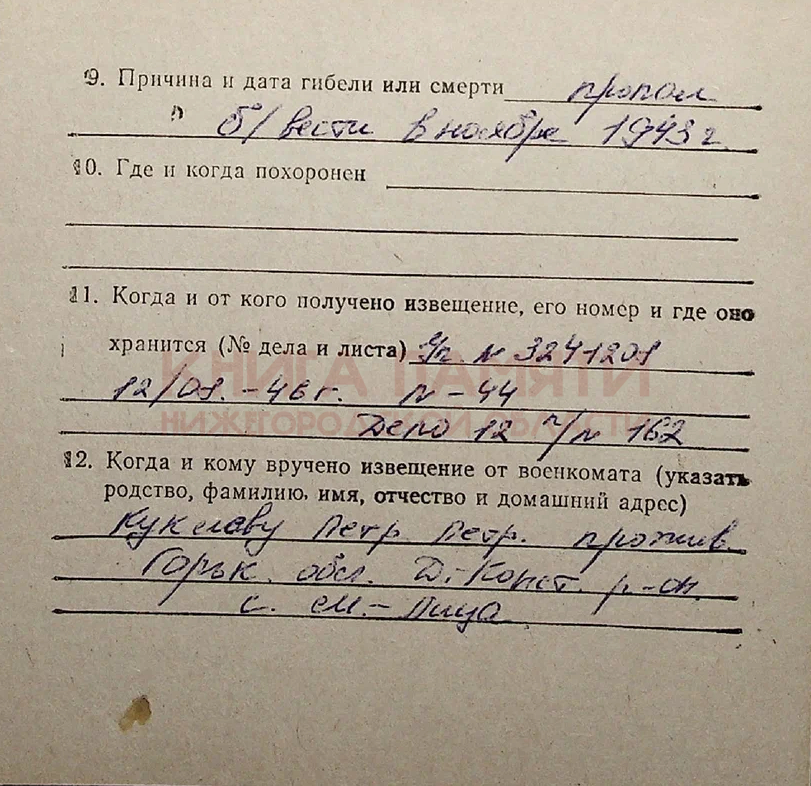 9. Причина и дата гибели или смерти пропал
б/вести в ноябре 1943 г.
10. Где и когда похоронен
11. Когда и от кого получено извещение, его номер и где оно
хранится (№ дела и листа) N 3241201
12/01.-46 г. N-44
КНИГА ПАМЯТИ
НИЖЕГОРОДСКОЙ ОБЛАСТИ
Дело 12 п/н 162
12. Когда и кому вручено извещение от военкомата (указать
родство, фамилию, имя, отчество и домашний адрес)
Петр. Петр. прожив.
Горьк. обл. Д.-Конст. р-он.
с.